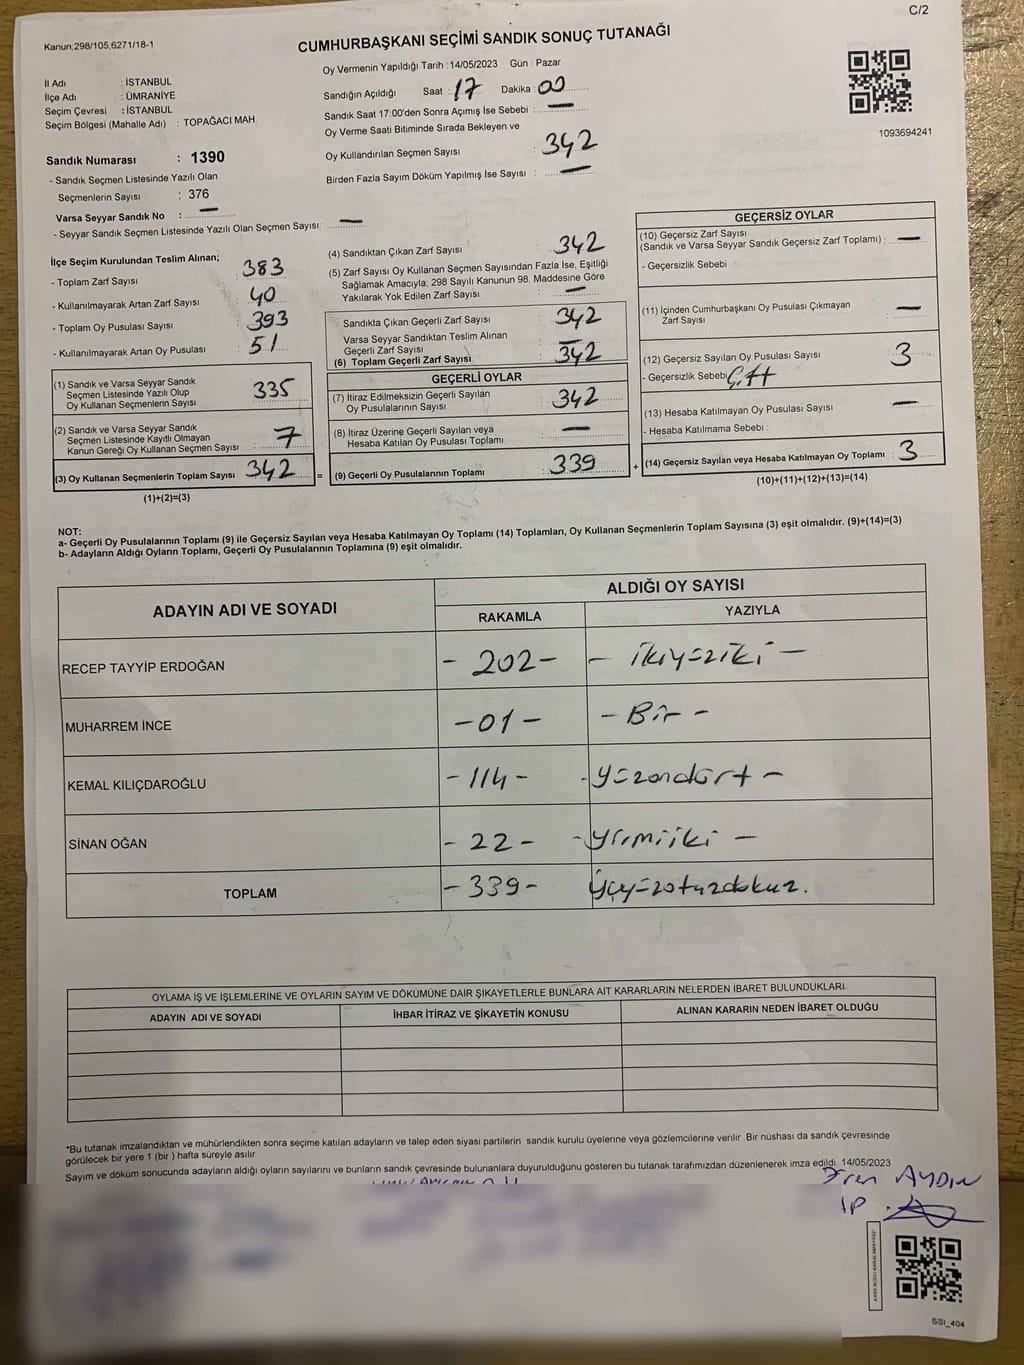 C/2
Kanun;298/105,6271/18-1
CUMHURBAŞKANI SEÇİMİ SANDIK SONUÇ TUTANAĞI
İl Adı : İSTANBUL
İlçe Adı : ÜMRANİYE
Seçim Çevresi : İSTANBUL
Seçim Bölgesi (Mahalle Adı) : TOPAĞACI MAH.
Sandık Numarası : 1390
- Sandık Seçmen Listesinde Yazılı Olan
Seçmenlerin Sayısı : 376
Varsa Seyyar Sandık No : —
- Seyyar Sandık Seçmen Listesinde Yazılı Olan Seçmen Sayısı: —
Oy Vermenin Yapıldığı Tarih : 14/05/2023 Gün : Pazar
Sandığın Açıldığı Saat : 17 Dakika : 00
Sandık Saat 17:00'den Sonra Açımış İse Sebebi : —
Oy Verme Saati Bitiminde Sırada Bekleyen ve
Oy Kullandırılan Seçmen Sayısı : 342
Birden Fazla Sayım Döküm Yapılmış İse Sayısı : —
1093694241
İlçe Seçim Kurulundan Teslim Alınan;
- Toplam Zarf Sayısı : 383
- Kullanılmayarak Artan Zarf Sayısı : 40
- Toplam Oy Pusulası Sayısı : 393
- Kullanılmayarak Artan Oy Pusulası : 51
(1) Sandık ve Varsa Seyyar Sandık
Seçmen Listesinde Yazılı Olup
Oy Kullanan Seçmenlerin Sayısı : 335
(2) Sandık ve Varsa Seyyar Sandık
Seçmen Listesinde Kayıtlı Olmayan
Kanun Gereği Oy Kullanan Seçmen Sayısı : 7
(3) Oy Kullanan Seçmenlerin Toplam Sayısı : 342 =
(1)+(2)=(3)
(4) Sandıktan Çıkan Zarf Sayısı : 342
(5) Zarf Sayısı Oy Kullanan Seçmen Sayısından Fazla İse, Eşitliği
Sağlamak Amacıyla; 298 Sayılı Kanunun 98. Maddesine Göre
Yakılarak Yok Edilen Zarf Sayısı : —
Sandıkta Çıkan Geçerli Zarf Sayısı : 342
Varsa Seyyar Sandıktan Teslim Alınan
Geçerli Zarf Sayısı : —
(6) Toplam Geçerli Zarf Sayısı : 342
GEÇERLİ OYLAR
(7) İtiraz Edilmeksizin Geçerli Sayılan
Oy Pusulalarının Sayısı : 342
(8) İtiraz Üzerine Geçerli Sayılan veya
Hesaba Katılan Oy Pusulası Toplamı : —
(9) Geçerli Oy Pusulalarının Toplamı : 339 +
GEÇERSİZ OYLAR
(10) Geçersiz Zarf Sayısı
(Sandık ve Varsa Seyyar Sandık Geçersiz Zarf Toplamı) : —
- Geçersizlik Sebebi :
(11) İçinden Cumhurbaşkanı Oy Pusulası Çıkmayan
Zarf Sayısı : —
(12) Geçersiz Sayılan Oy Pusulası Sayısı : 3
- Geçersizlik Sebebi
(13) Hesaba Katılmayan Oy Pusulası Sayısı : —
- Hesaba Katılmama Sebebi :
(14) Geçersiz Sayılan veya Hesaba Katılmayan Oy Toplamı : 3
(10)+(11)+(12)+(13)=(14)
NOT:
a- Geçerli Oy Pusulalarının Toplamı (9) ile Geçersiz Sayılan veya Hesaba Katılmayan Oy Toplamı (14) Toplamları, Oy Kullanan Seçmenlerin Toplam Sayısına (3) eşit olmalıdır. (9)+(14)=(3)
b- Adayların Aldığı Oyların Toplamı, Geçerli Oy Pusulalarının Toplamına (9) eşit olmalıdır.
ADAYIN ADI VE SOYADI ALDIĞI OY SAYISI
RAKAMLA YAZIYLA
RECEP TAYYİP ERDOĞAN - 202 - - ikiyüziki -
MUHARREM İNCE - 01 - - Bir -
KEMAL KILIÇDAROĞLU - 114 - - yüzondört -
SİNAN OĞAN - 22 - - yirmiiki -
TOPLAM - 339 - Üçyüzotuzdokuz.
OYLAMA İŞ VE İŞLEMLERİNE VE OYLARIN SAYIM VE DÖKÜMÜNE DAİR ŞİKAYETLERLE BUNLARA AİT KARARLARIN NELERDEN İBARET BULUNDUKLARI
ADAYIN ADI VE SOYADI İHBAR İTİRAZ VE ŞİKAYETİN KONUSU ALINAN KARARIN NEDEN İBARET OLDUĞU
*Bu tutanak imzalandıktan ve mühürlendikten sonra seçime katılan adayların ve talep eden siyasi partilerin sandık kurulu üyelerine veya gözlemcilerine verilir. Bir nüshası da sandık çevresinde
görülecek bir yere 1 (bir) hafta süreyle asılır.
Sayım ve döküm sonucunda adayların aldığı oyların sayılarını ve bunların sandık çevresinde bulunanlara duyurulduğunu gösteren bu tutanak tarafımızdan düzenlenerek imza edildi. 14/05/2023
AYDIN
İP
SSI_404